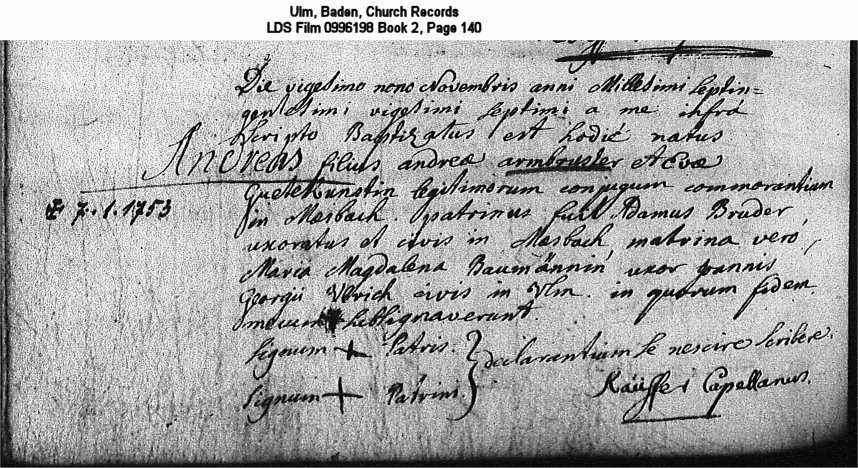 Ulm, Baden, Church Records
LDS Film 0996198 Book 2, Page 140
Die vigesimo nono Novembris anni Millesimi Septin=
gentesimi vigesimi septimi a me infrá
Scripto Baptizatus est hodié natus
Andreas filius andreæ armbruster et Evæ
legitimorum conjugum commorantium
✠ 7. 1. 1753
in Mosbach. patrinus fuit Adamus Bruder,
uxoratus et civis in Mosbach, matrina vero,
Maria Magdalena Baumännin, uxor joannis
Georgii Ulrich civis in Vlm. in quorum fidem
mecum subsignaverunt
Signum + Patris. } declarantium se nescire scribere.
Signum + Patrini. } Käuffer Capellanus.